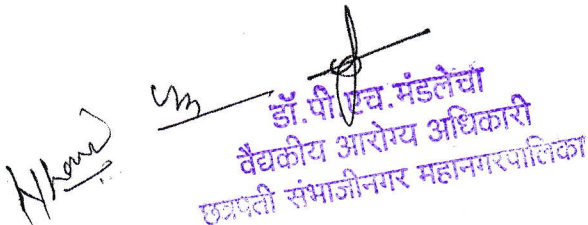 डॉ.पी.एच.मंडलेचा
वैद्यकीय आरोग्य अधिकारी
छत्रपती संभाजीनगर महानगरपालिका